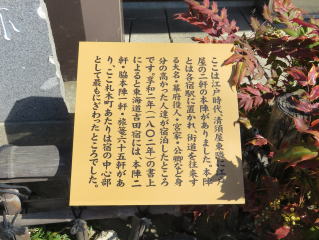 ここは江戸時代、清須屋東隣に江戸
屋の二軒の本陣がありました。本陣
とは各宿駅に置かれ、街道を往来す
る大名・幕府役人・宮家・公卿など身
分の高かった人達が宿泊したところ
です。享和二年（一八〇二年）の書上
によると東海道吉田宿には、本陣二
軒・脇本陣一軒・旅篭六十五軒があ
り、ここ札木町あたりは宿の中心部
として最もにぎわったところでした。